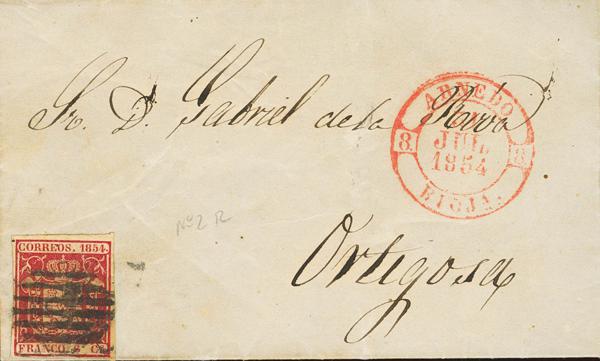 Sr. D. Gabriel de la Riva
Ortigosa
ARNEDO
JUL.
1854
8. 8.
RIOJA.
Nº2 R
CORREOS. 1854.
FRANCO. 6 Cs.